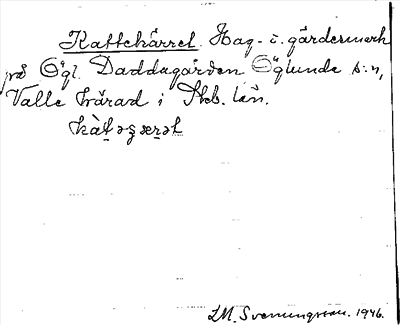 Kattekärret. Hag- o. gärdesmark
på Ögl. Daddagården Öglunda s:n,
Valle härad i Skb. län.
kàt̲əʂæṟət
LM. Svenungsson. 1946.